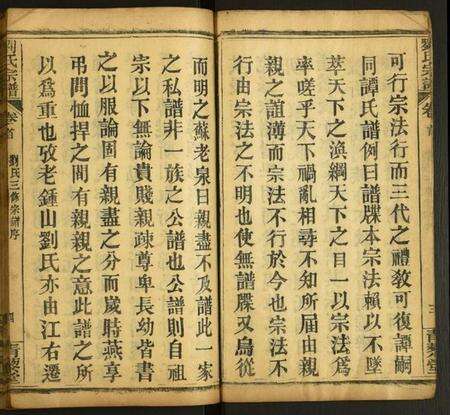 可行宗法行而三代之禮教可復譚嗣
同譚氏譜例曰譜牒本宗法賴以不墜
萃天下之渙綱天下之目一以宗法爲
率嗟乎天下禍亂相尋不知所届由親
親之誼薄而宗法不行於今也宗法不
行由宗法之不明也使無譜牒又烏從
而明之蘇老泉曰親盡不及譜此一家
之私譜非一族之公譜也公譜則自祖
宗以下無論貴賤親疎尊卑長幼皆書
之以服論固有親盡之分而歲時燕享
弔問恤捍之間有親親之意此譜之所
以爲重也攷老鍾山劉氏亦由江右遷
劉氏宗譜
卷首
劉氏三修宗譜序
四
青藜堂